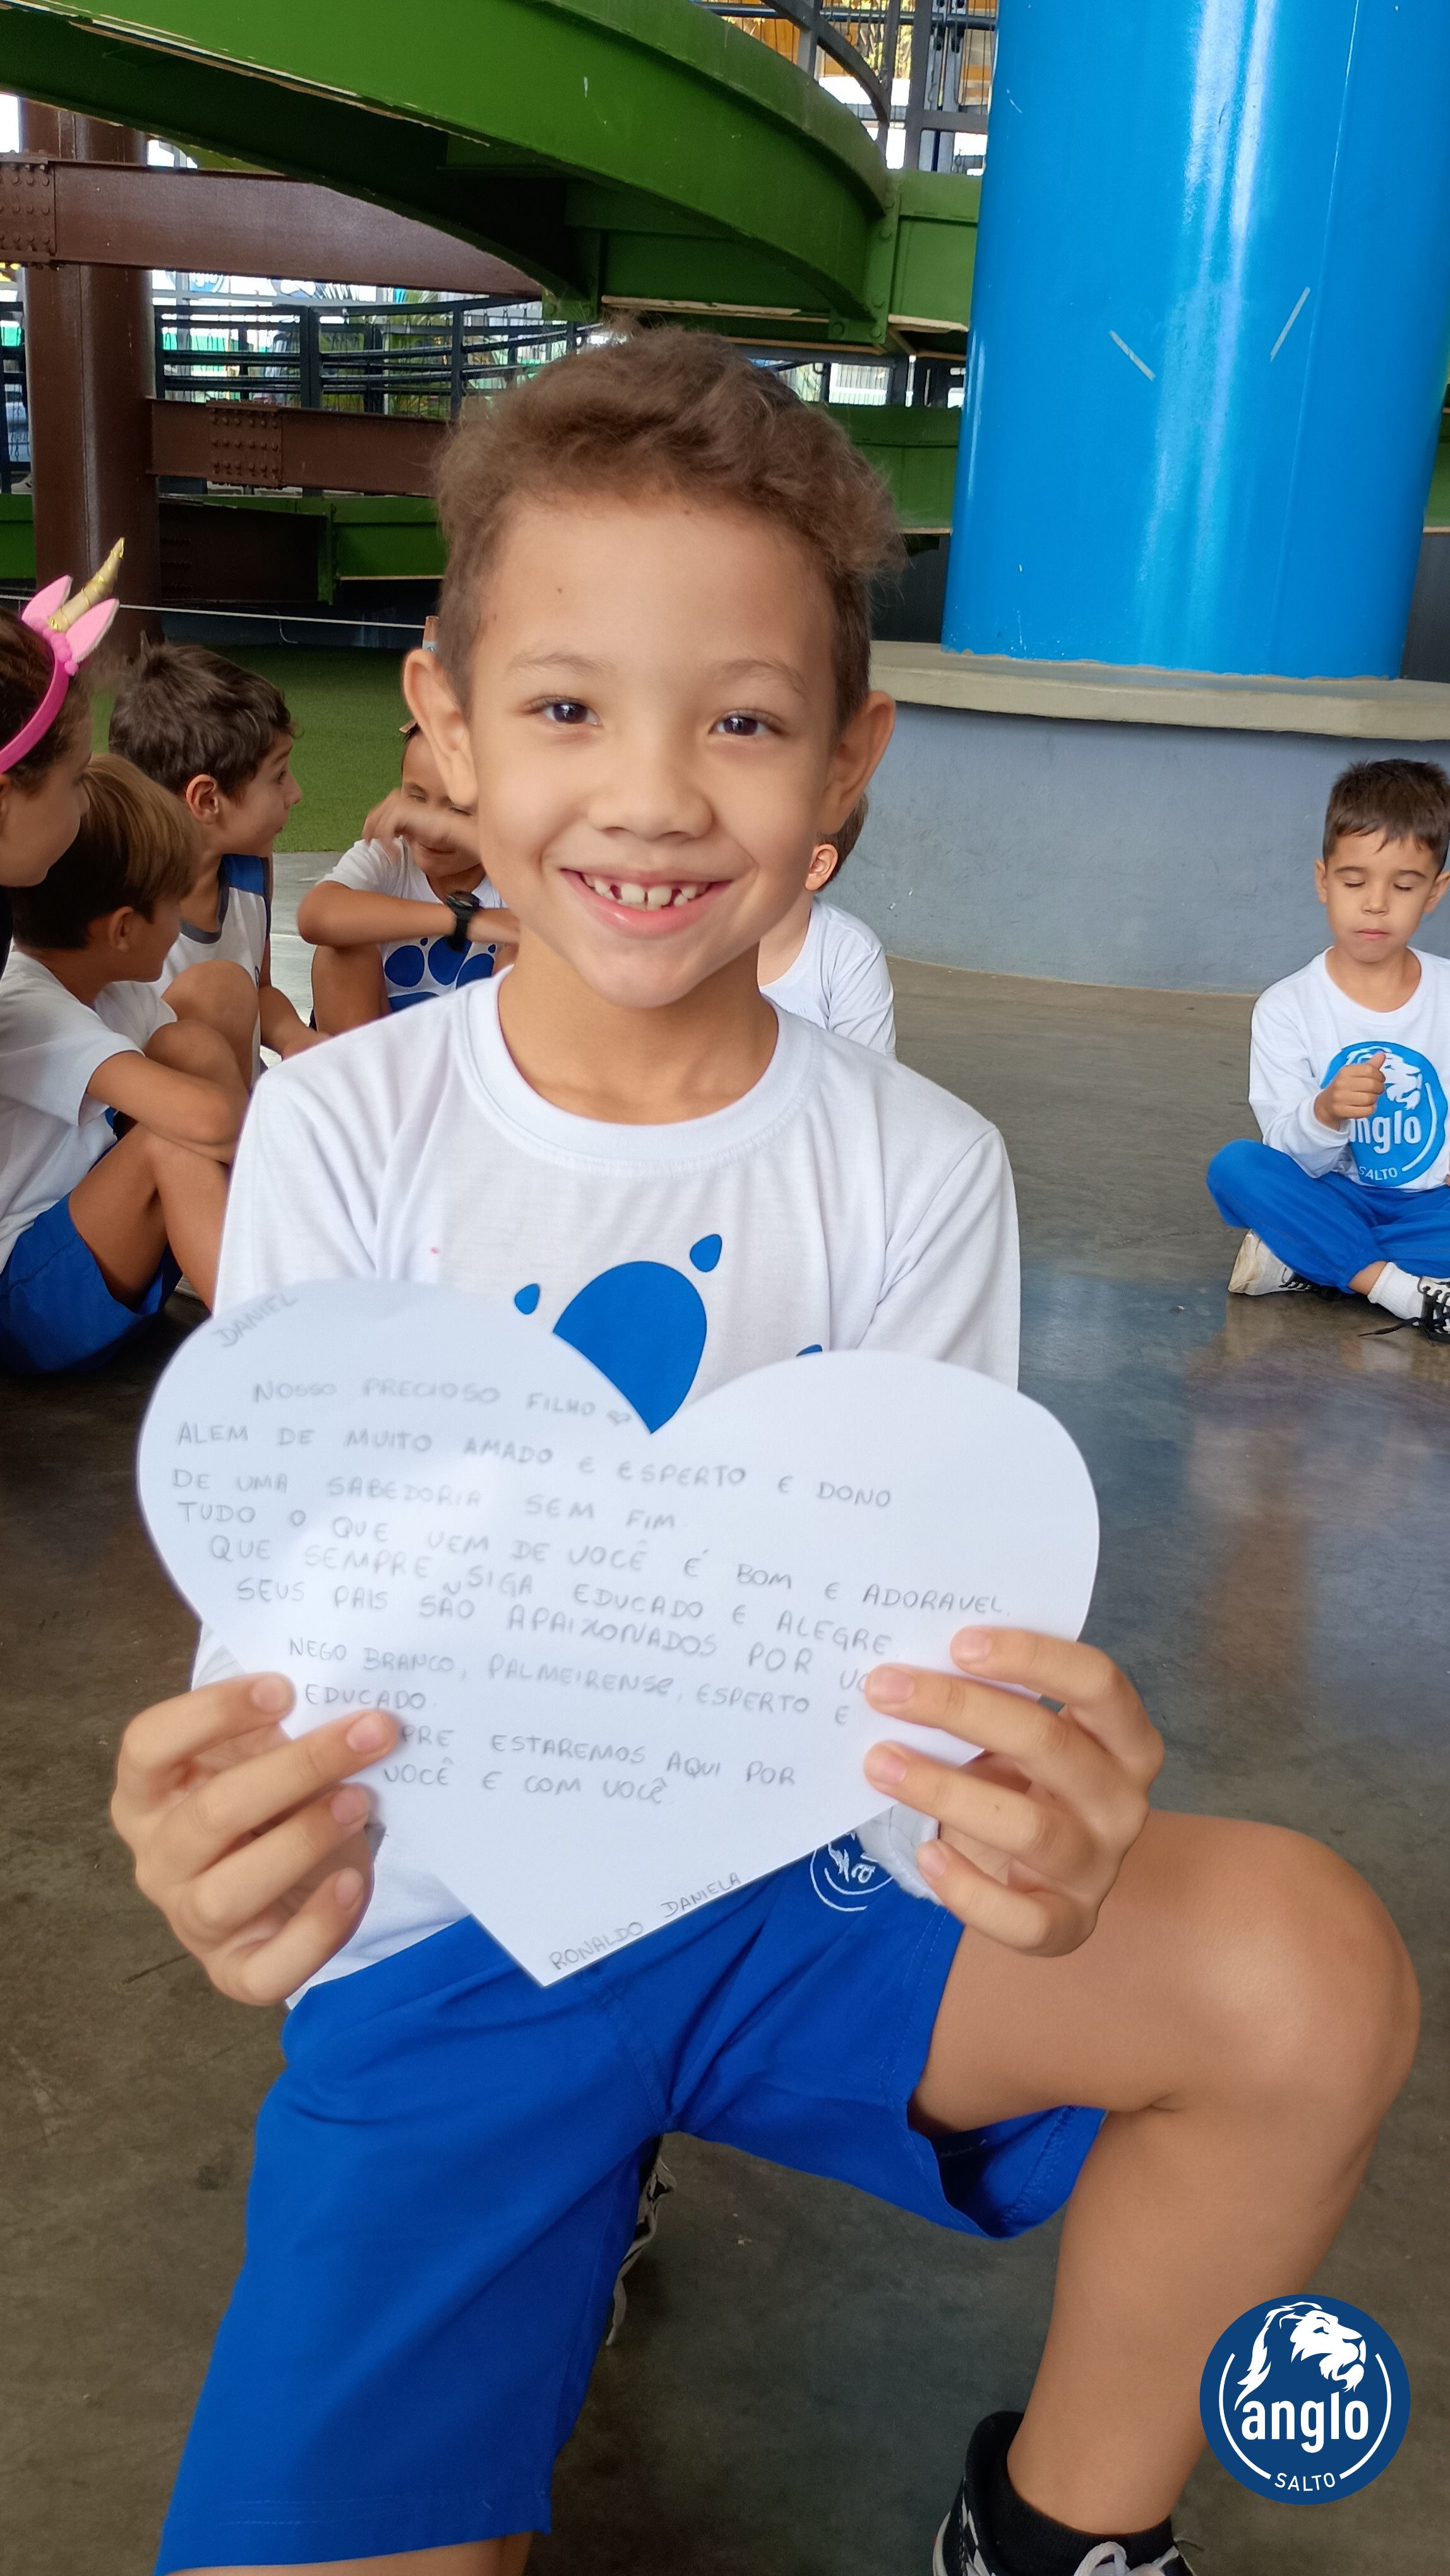 DANIEL
NOSSO PRECIOSO FILHO
ALEM DE MUITO AMADO E ESPERTO E DONO
DE UMA SABEDORIA SEM FIM
TUDO O QUE VEM DE VOCÊ É BOM E ADORAVEL.
QUE SEMPRE SIGA EDUCADO E ALEGRE
SEUS PAIS SÃO APAIXONADOS POR
NEGO BRANCO, PALMEIRENSE, ESPERTO E
EDUCADO.
ESTAREMOS AQUI POR
VOCÊ E COM VOCÊ
RONALDO DANIELA
anglo
SALTO
anglo
SALTO